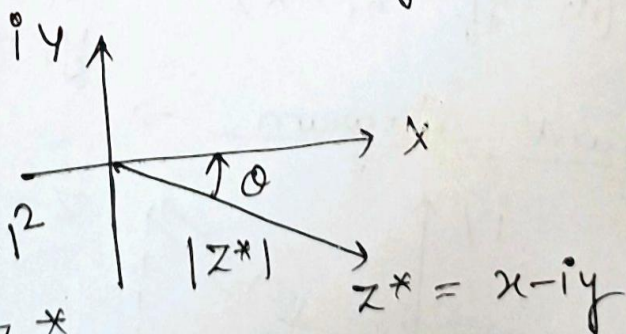 iy
X
θ
|z*|
z* = x-iy